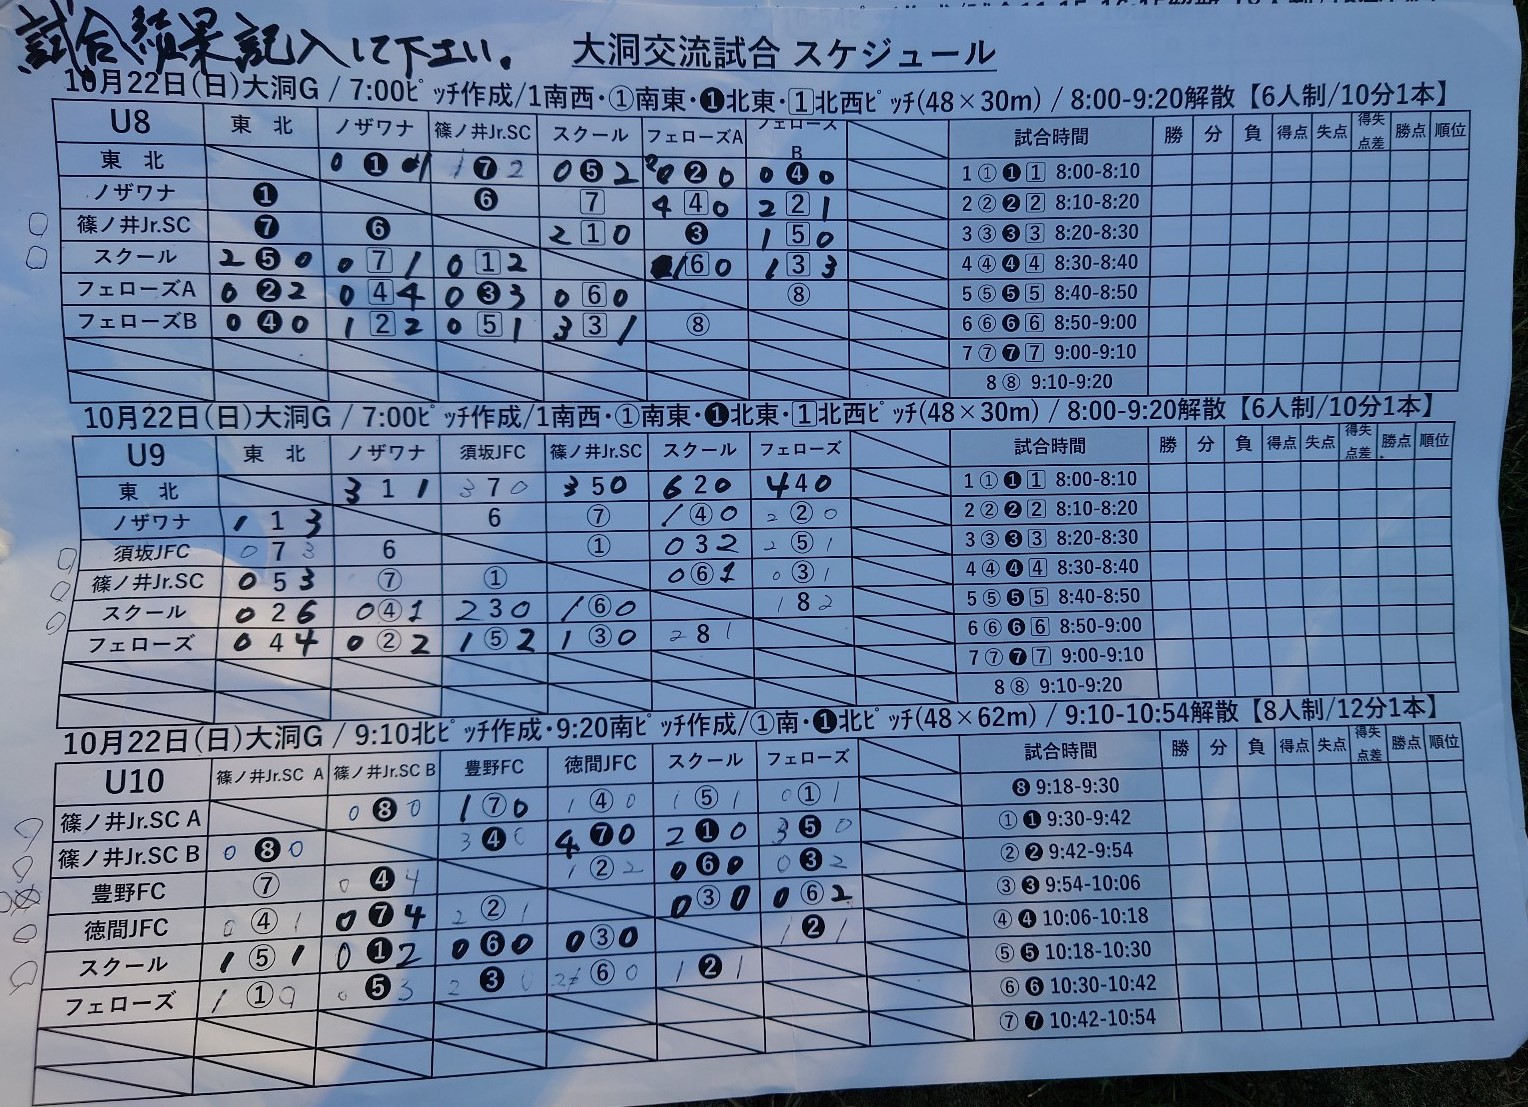 試合結果記入して下さい。
大洞交流試合 スケジュール
10月22日(日)大洞G / 7:00ﾋﾟｯﾁ作成/1南西・①南東・❶北東・[1]北西ﾋﾟｯﾁ(48×30m) / 8:00-9:20解散【6人制/10分1本】
U8 東 北 ノザワナ 篠ノ井Jr.SC スクール フェローズA フェローズB 試合時間 勝 分 負 得点 失点 得失点差 勝点 順位
東 北 0 ❶ 1 ❼ 2 0 ❺ 2 ❷ 0 0 ❹ 0 1 ① ❶ [1] 8:00-8:10
ノザワナ ❶ ❻ [7] 4 [4] 0 2 [2] 1 2 ② ❷ [2] 8:10-8:20
篠ノ井Jr.SC ❼ ❻ 2 [1] 0 ❸ 1 [5] 0 3 ③ ❸ [3] 8:20-8:30
スクール 2 ❺ 0 0 [7] 1 0 [1] 2 [6] 0 1 [3] 3 4 ④ ❹ [4] 8:30-8:40
フェローズA 0 ❷ 2 0 [4] 4 0 ❸ 3 0 [6] 0 ⑧ 5 ⑤ ❺ [5] 8:40-8:50
フェローズB 0 ❹ 0 1 [2] 2 0 [5] 1 3 [3] 1 ⑧ 6 ⑥ ❻ [6] 8:50-9:00
7 ⑦ ❼ [7] 9:00-9:10
8 ⑧ 9:10-9:20
10月22日(日)大洞G / 7:00ﾋﾟｯﾁ作成/1南西・①南東・❶北東・[1]北西ﾋﾟｯﾁ(48×30m) / 8:00-9:20解散【6人制/10分1本】
U9 東 北 ノザワナ 須坂JFC 篠ノ井Jr.SC スクール フェローズ 試合時間 勝 分 負 得点 失点 得失点差 勝点 順位
東 北 3 1 1 3 7 0 3 5 0 6 2 0 4 4 0 1 ① ❶ [1] 8:00-8:10
ノザワナ 1 1 3 6 ⑦ 1 ④ 0 2 ② 0 2 ② ❷ [2] 8:10-8:20
須坂JFC 0 7 3 6 ① 0 3 2 2 ⑤ 1 3 ③ ❸ [3] 8:20-8:30
篠ノ井Jr.SC 0 5 3 ⑦ ① 0 ⑥ 1 0 ③ 1 4 ④ ❹ [4] 8:30-8:40
スクール 0 2 6 0 ④ 1 2 3 0 1 ⑥ 0 1 8 2 5 ⑤ ❺ [5] 8:40-8:50
フェローズ 0 4 4 0 ② 2 1 ⑤ 2 1 ③ 0 2 8 1 6 ⑥ ❻ [6] 8:50-9:00
7 ⑦ ❼ [7] 9:00-9:10
8 ⑧ 9:10-9:20
10月22日(日)大洞G / 9:10北ﾋﾟｯﾁ作成・9:20南ﾋﾟｯﾁ作成/①南・❶北ﾋﾟｯﾁ(48×62m) / 9:10-10:54解散【8人制/12分1本】
U10 篠ノ井Jr.SC A 篠ノ井Jr.SC B 豊野FC 徳間JFC スクール フェローズ 試合時間 勝 分 負 得点 失点 得失点差 勝点 順位
篠ノ井Jr.SC A 0 ❽ 0 1 ⑦ 0 1 ④ 0 1 ⑤ 1 0 ① 1 ❽ 9:18-9:30
篠ノ井Jr.SC B 0 ❽ 0 3 ❹ 0 4 ❼ 0 2 ❶ 0 3 ❺ 0 ① ❶ 9:30-9:42
豊野FC ⑦ 0 ❹ 4 1 ② 2 0 ❻ 0 0 ❸ 2 ② ❷ 9:42-9:54
徳間JFC 0 ④ 1 0 ❼ 4 2 ② 1 0 ③ 0 0 ⑥ 2 ③ ❸ 9:54-10:06
スクール 1 ⑤ 1 0 ❶ 2 0 ❻ 0 0 ③ 0 1 ❷ 1 ④ ❹ 10:06-10:18
フェローズ 1 ① 0 ❺ 3 2 ❸ 0 ⑥ 0 1 ❷ 1 ⑤ ❺ 10:18-10:30
⑥ ❻ 10:30-10:42
⑦ ❼ 10:42-10:54